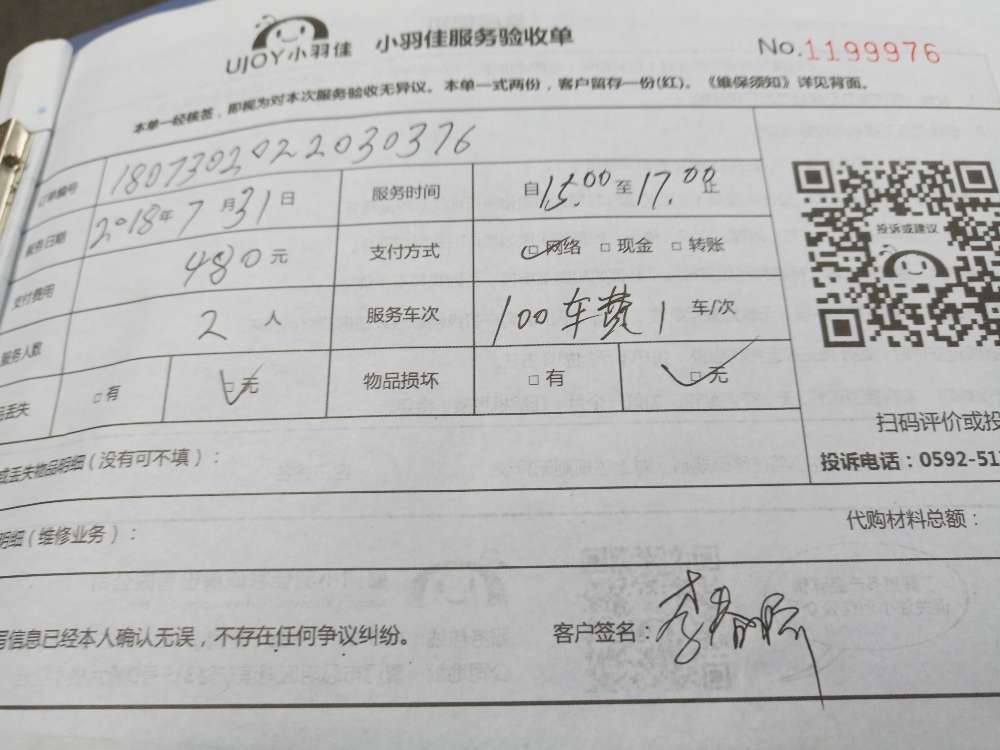 UJOY小羽佳 小羽佳服务验收单 No.1199976
本单一经核签，即视为对本次服务验收无异议。本单一式两份，客户留存一份(红)。《维保须知》详见背面。
订单编号 1807302022030376
服务日期 2018年7月31日 服务时间 自15:00至17:00止
支付费用 480元 支付方式 □网络 □现金 □转账
服务人数 2人 服务车次 100车费1车/次
品丢失 □有 □无 物品损坏 □有 □无
投诉或建议
扫码评价或投
投诉电话：0592-511
或丢失物品明细(没有可不填)：
明细(维修业务)： 代购材料总额：
写信息已经本人确认无误，不存在任何争议纠纷。 客户签名：李